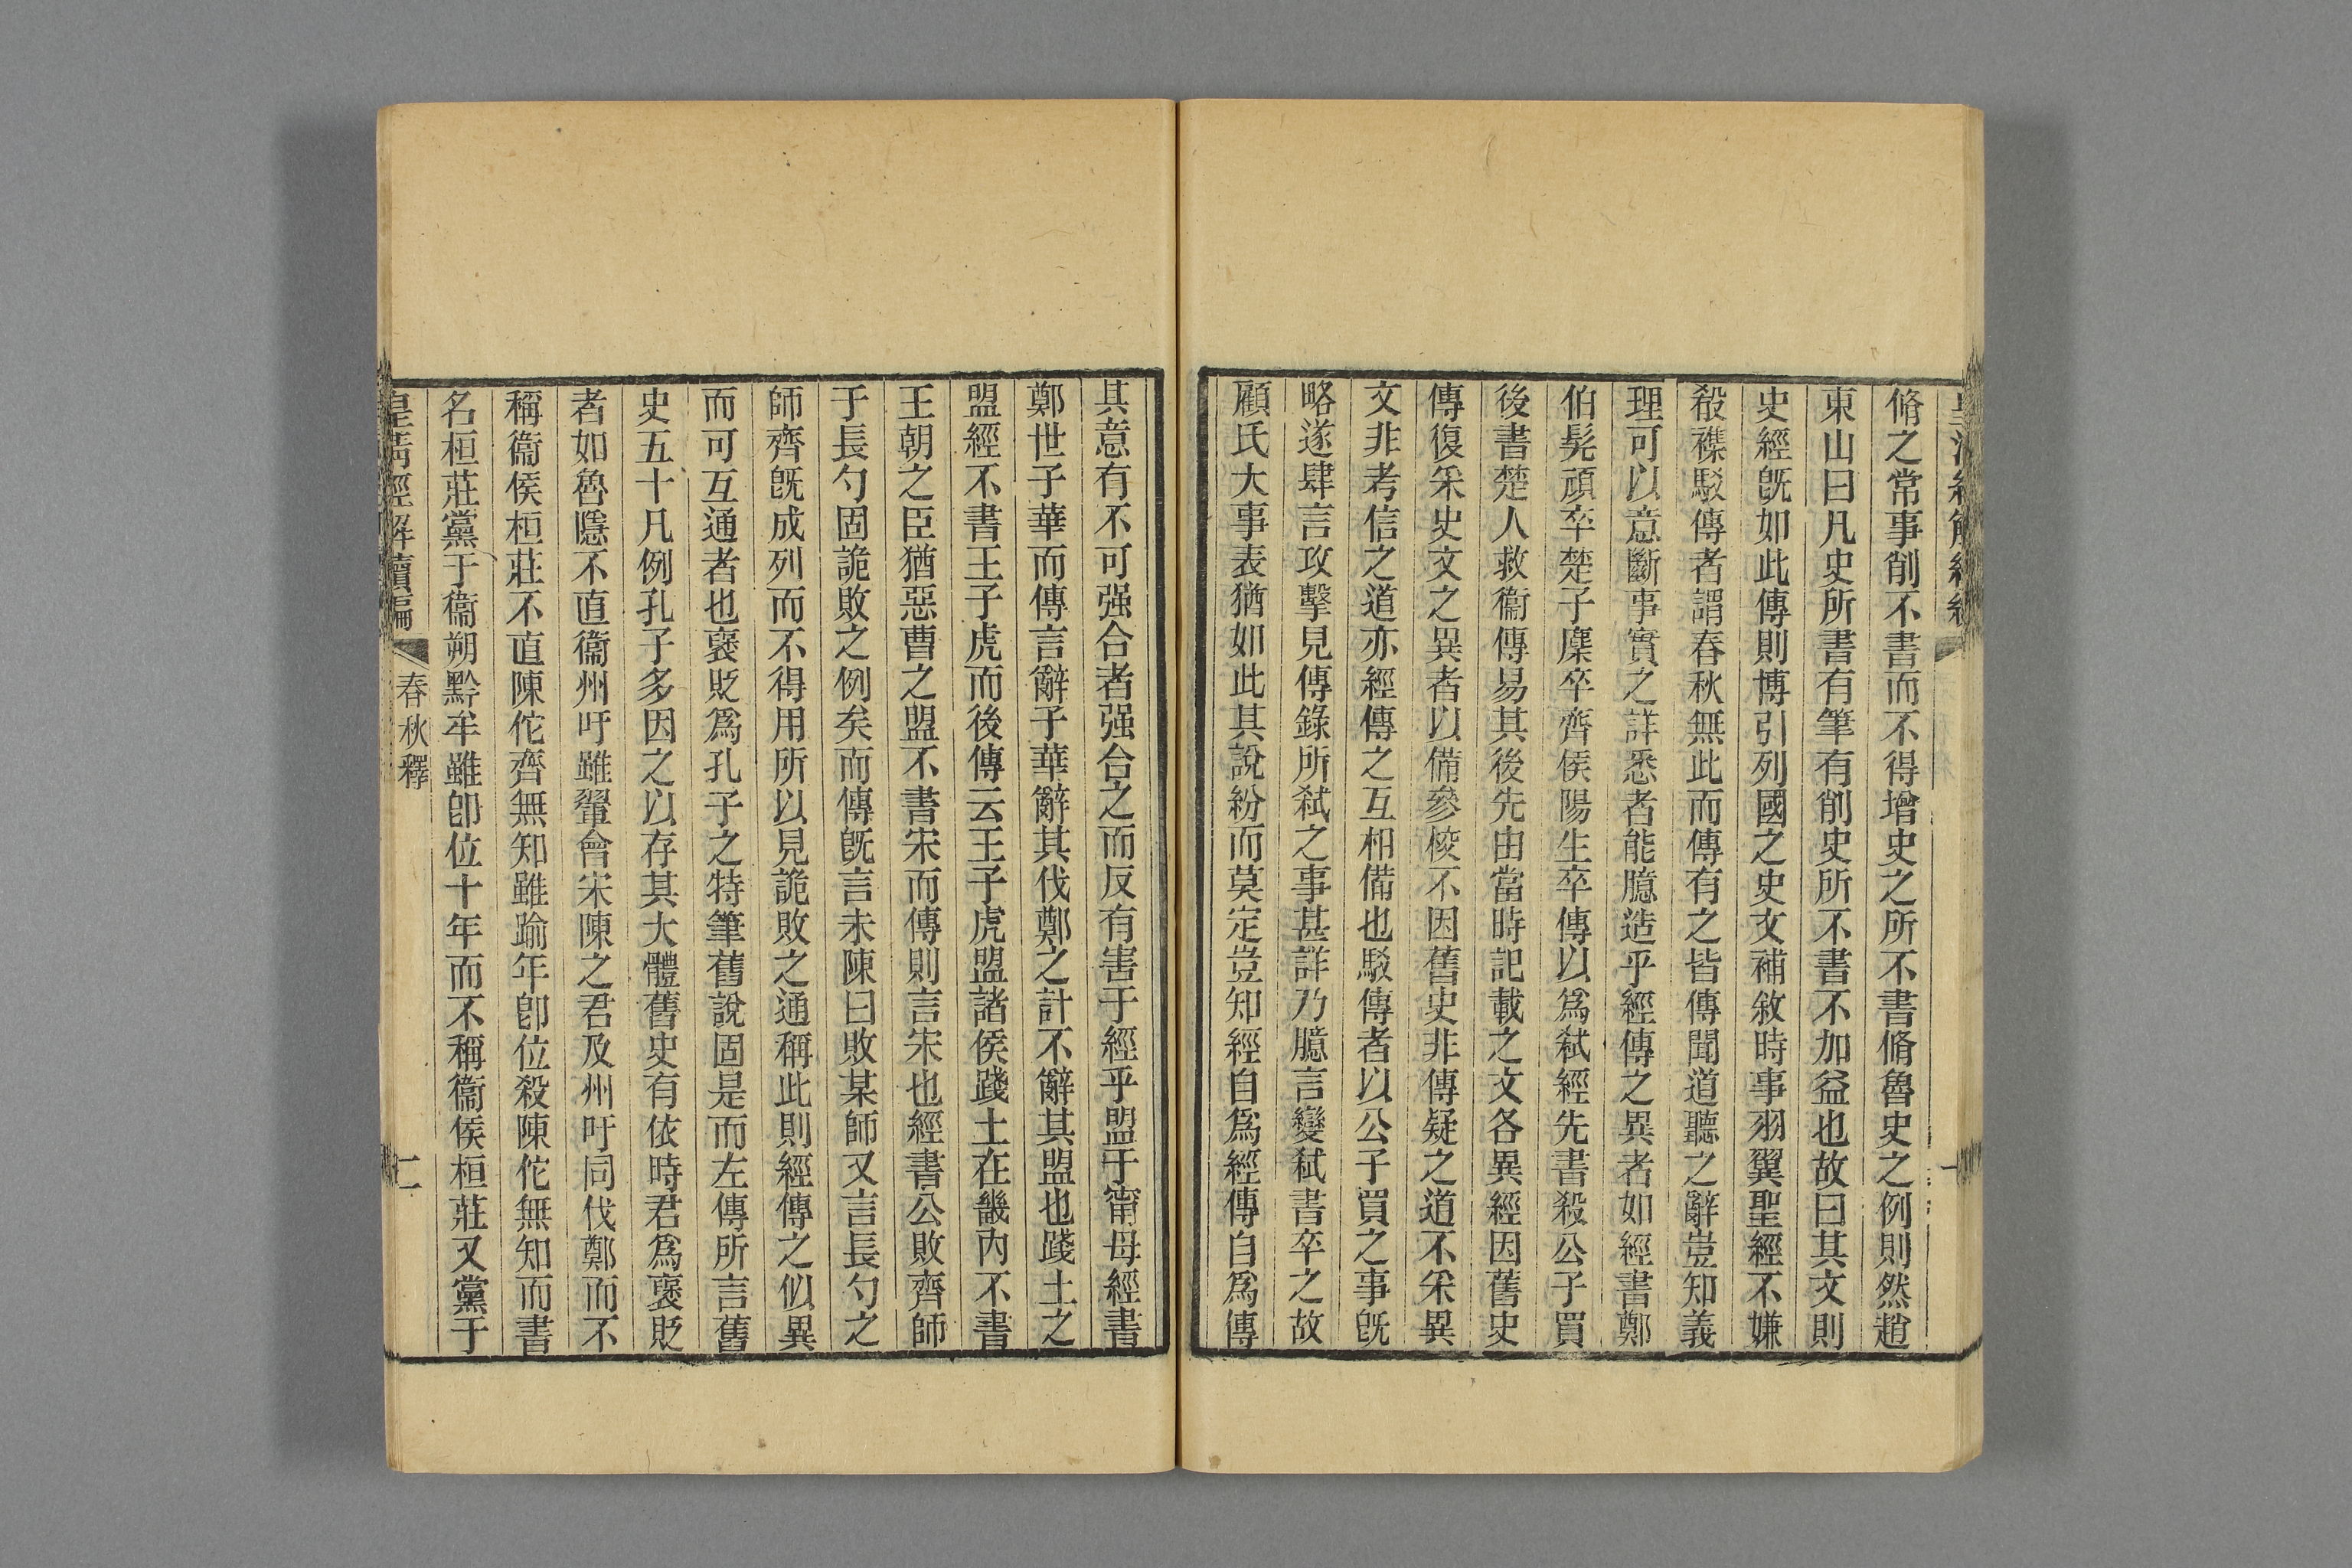 脩之常事削不書而不得增史之所不書脩魯史之例則然趙
東山曰凡史所書有筆有削史所不書不加益也故曰其文則
史經旣如此傳則博引列國之史文補敘時事羽翼聖經不嫌
殽襍駁傳者謂春秋無此而傳有之皆傳聞道聽之辭豈知義
理可以意斷事實之詳悉者能臆造乎經傳之異者如經書鄭
伯髡頑卒楚子麇卒齊侯陽生卒傳以爲弑經先書殺公子買
後書楚人救衞傳易其後先由當時記載之文各異經因舊史
傳復采史文之異者以備參檢不因舊史非傳疑之道不采異
文非考信之道亦經傳之互相備也駁傳者以公子買之事旣
略遂肆言攻擊見傳錄所弑之事甚詳乃臆言變弑書卒之故
顧氏大事表猶如此其說紛而莫定豈知經自爲經傳自爲傳
其意有不可强合者强合之而反有害于經乎盟于甯母經書
鄭世子華而傳言辭子華辭其伐鄭之計不辭其盟也踐土之
盟經不書王子虎而後傳云王子虎盟諸侯踐土在畿內不書
王朝之臣猶惡曹之盟不書宋而傳則言宋也經書公敗齊師
于長勺固詭敗之例矣而傳旣言未陳曰敗某師又言長勺之
師齊旣成列而不得用所以見詭敗之通稱此則經傳之似異
而可互通者也襃貶爲孔子之特筆舊說固是而左傳所言舊
史五十凡例孔子多因之以存其大體舊史有依時君爲襃貶
者如魯隱不直衞州吁雖翬會宋陳之君及州吁同伐鄭而不
稱衞侯桓莊不直陳佗齊無知雖踰年卽位殺陳佗無知而書
名桓莊黨于衞朔黔牟雖卽位十年而不稱衞侯桓莊又黨于
皇淸經解續編
春秋釋
二